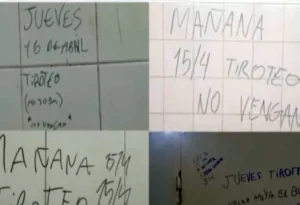 JUEVES
16 DE ABRIL
TIROTEO
(NO JODA)
*NO VENGAN*
MAÑANA
15/4 TIROTEO
NO VENGAN
MAÑANA 15/4
TIROTEO 15/4
JUEVES TIROTE